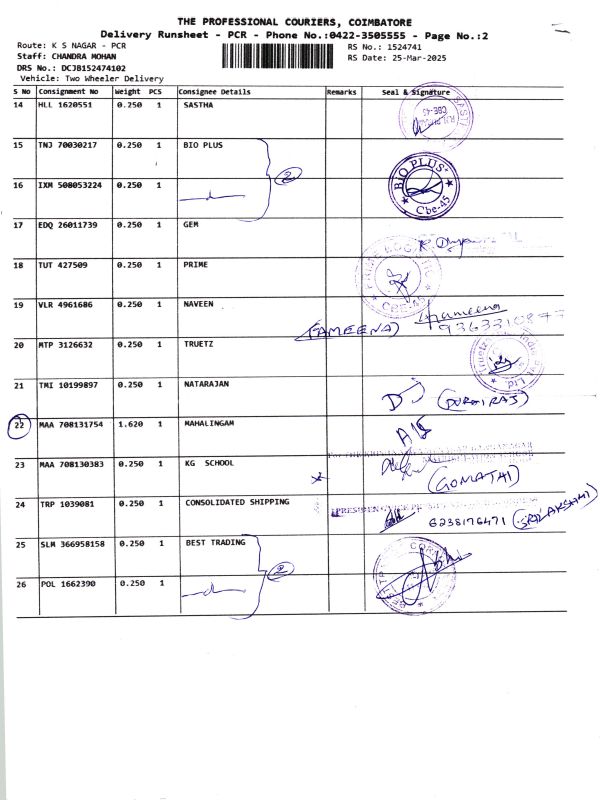 THE PROFESSIONAL COURIERS, COIMBATORE
Delivery Runsheet - PCR - Phone No.:0422-3505555 - Page No.:2
Route: K S NAGAR - PCR
RS No.: 1524741
Staff: CHANDRA MOHAN
RS Date: 25-Mar-2025
DRS No.: DCJB152474102
Vehicle: Two Wheeler Delivery
S No Consignment No Weight PCS Consignee Details Remarks Seal & Signature
14 HLL 1620551 0.250 1 SASTHA CBE-45
15 TNJ 70030217 0.250 1 BIO PLUS 2
16 IXM 508053224 0.250 1 -d- BIO PLUS Cbe-45
17 EDQ 26011739 0.250 1 GEM
18 TUT 427509 0.250 1 PRIME CBE-45
19 VLR 4961686 0.250 1 NAVEEN (AMEENA) Ameena
20 MTP 3126632 0.250 1 TRUETZ Ltd.
21 TMI 10199897 0.250 1 NATARAJAN (DURAIRAJ)
22 MAA 708131754 1.620 1 MAHALINGAM
23 MAA 708130383 0.250 1 KG SCHOOL (GOMATHI)
24 TRP 1039081 0.250 1 CONSOLIDATED SHIPPING 6238176471
25 SLM 366958158 0.250 1 BEST TRADING 2
26 POL 1662390 0.250 1 -d-